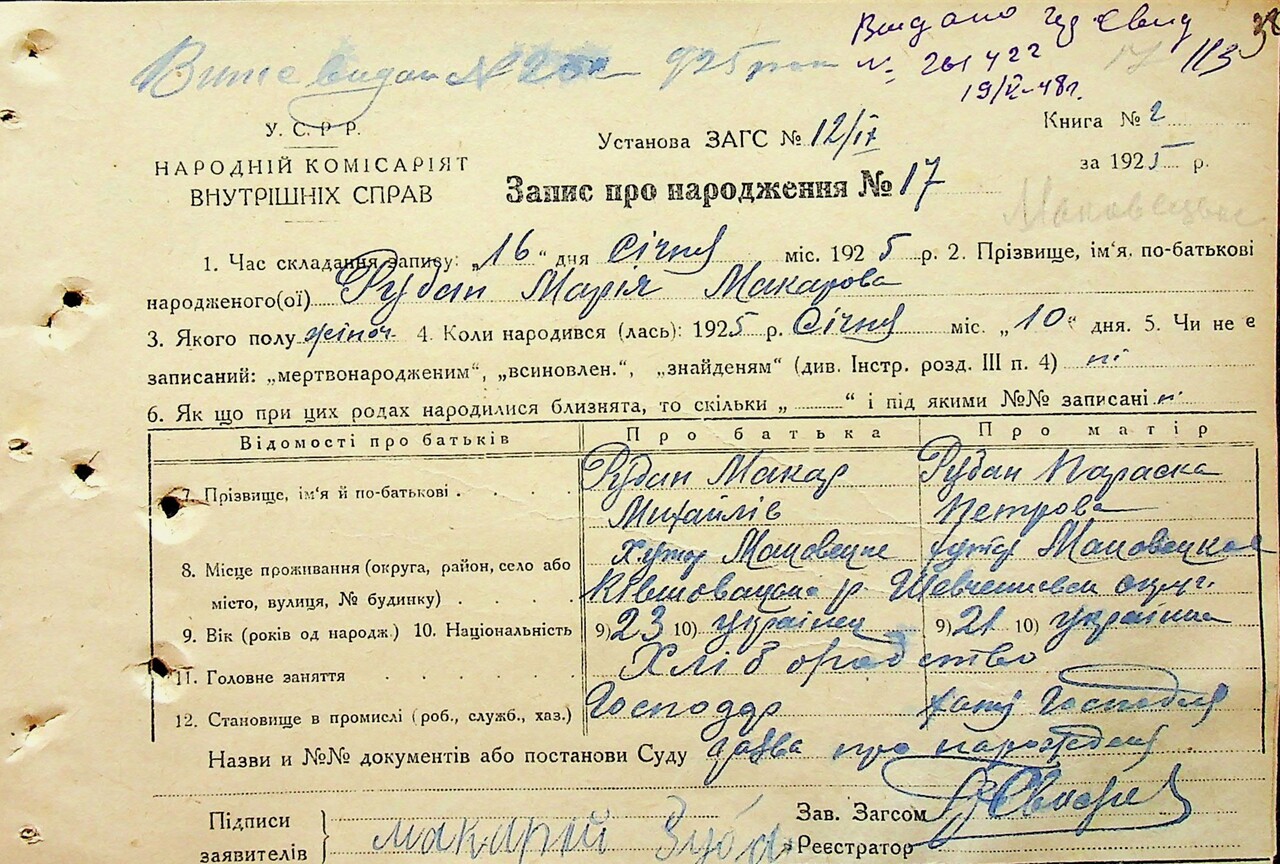 Видано гус Свид
№ 261422
19/V-48г.
Витяг видан № 925
У. С. Р Р.
НАРОДНІЙ КОМІСАРІЯТ
ВНУТРІШНІХ СПРАВ
Установа ЗАГС № 12/ІХ
Книга № 2
за 1925 р.
Запис про народження № 17
1. Час складання запису: „16“ дня Січня міс. 1925 р. 2. Прізвище, ім'я, по-батькові
народженого(ої) Рубан Марія Макарова
3. Якого полу жіноч 4. Коли народився (лась): 1925 р. Січня міс. „10“ дня. 5. Чи не є
записаний: „мертвонародженим“, „всиновлен.“, „знайденям“ (див. Інстр. розд. III п. 4) ні
6. Як що при цих родах народилися близнята, то скільки „ “ і під якими №№ записані ні
Відомості про батьків Про батька Про матір
7. Прізвище, ім'я й по-батькові Рубан Макар Рубан Параска
Михайлів Петрова
8. Місце проживання (округа, район, село або
місто, вулиця, № будинку) Хутір
р. Шевченківськ округ.
9. Вік (років од народж.) 10. Національність 9) 23 10) українец 9) 21 10) українка
11. Головне заняття Хліборобство
12. Становище в промислі (роб., служб., хаз.) Господар
Назви и №№ документів або постанови Суду про
Зав. Загсом
Підписи
заявителів Макарій
Реєстратор